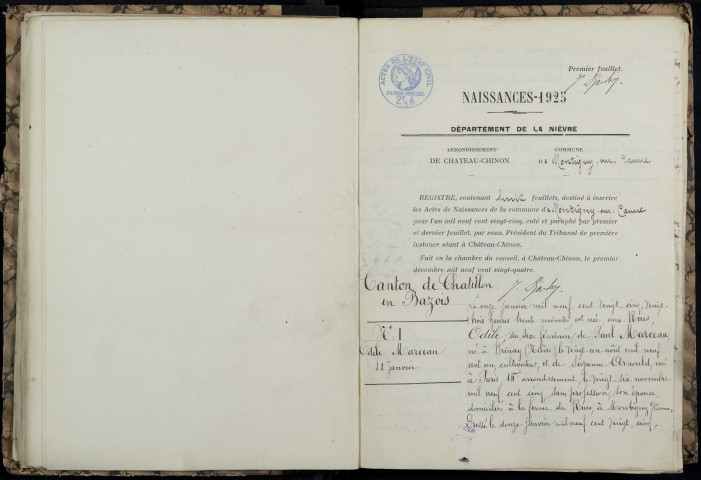 Premier feuillet.
ACTES DE L'ÉTAT CIVIL
PAPIER SPÉCIAL
NAISSANCES-1925
DÉPARTEMENT DE LA NIÈVRE
ARRONDISSEMENT
COMMUNE
DE CHATEAU-CHINON
de Montigny-sur-Canne
REGISTRE, contenant huit feuillets, destiné à inscrire
les Actes de Naissances de la commune de Montigny-sur-Canne
pour l'an mil neuf cent vingt-cinq, coté et paraphé par premier
et dernier feuillet, par nous, Président du Tribunal de première
instance séant à Château-Chinon.
Fait en la chambre du conseil, à Château-Chinon, le premier
décembre mil neuf cent vingt-quatre.
Canton de Chatillon
en Bazois
N° 1
Odile Marceau
11 Janvier
Le onze janvier mil neuf cent vingt cinq, vingt
trois heures trente minutes, est née, aux Rues,
Odile, du sexe féminin de Paul Marceau
né à Brinay (Nièvre) le vingt un août mil neuf
cent un, cultivateur, et de Suzanne Arnould, née
à Paris arrondissement, le vingt six novembre
mil neuf cent cinq, sans profession, son épouse,
domiciliés à la ferme des Rues, à Montigny s/Canne.
Dressé le douze janvier mil neuf cent vingt cinq,